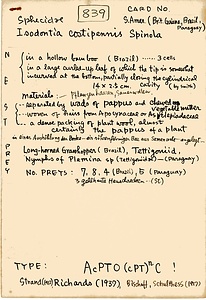 839
CARD NO.
Sphecidae
S. Amer. (Brit. Guiana, Brazil, Paraguay)
Isodontia costipennis Spinola
NEST
in a hollow bamboo (Brazil) ..... 3 cells
in a large curled-up leaf of which the tip is somewhat
incurved at the bottom, partially closing the cylindrical
14 x 2.5 cm. cavity (by twine)
Materials:-
separated by wads of pappus and chewed vegetable matter
woven of hairs from Apocynaceae or Asclepiadaceae
a dense packing of plant wool, almost
certainly the pappus of a plant
PREY
Long-horned Grasshopper (Brazil), Tettigoniid.
Nymphs of Plemina sp (Tettigoniidae) — (Paraguay)
NO. PREYS: 7, 8, 4 (Brazil), 5 (Paraguay)
(SC)
TYPE: AcPTO(cPT)ⁿC !
Strand (1910) Richards (1937), Bischoff, Schulthess (1917)